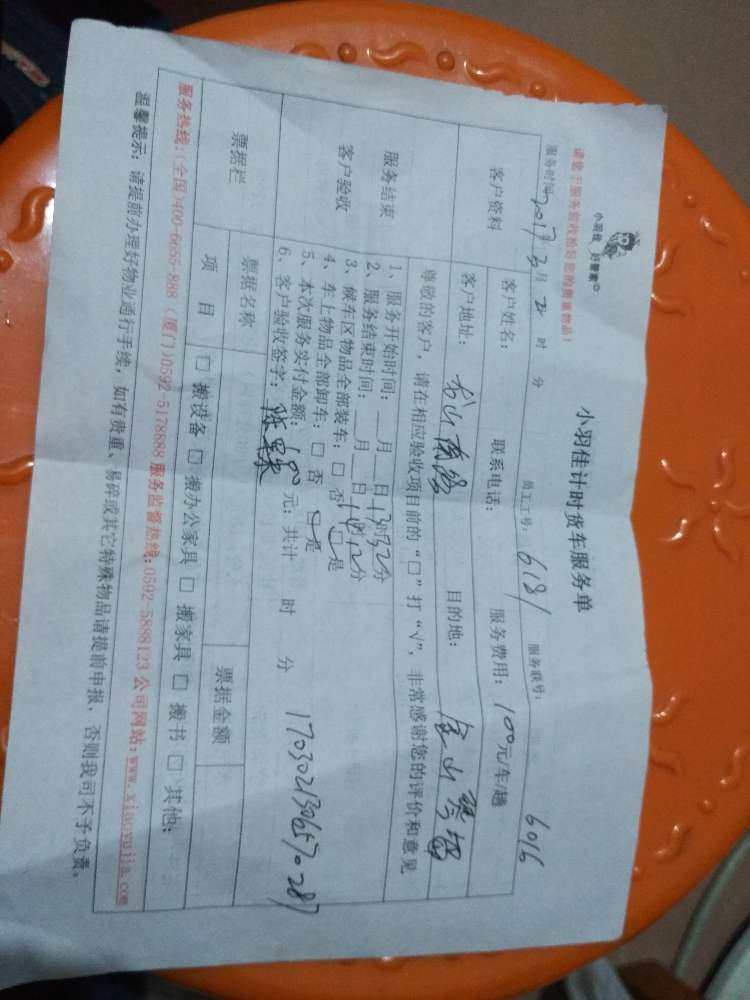 小羽佳 好管家
小羽佳计时货车服务单
请您于服务前收拾好您的贵重物品!
服务时间: 2017年3月2日 时 分 员工工号: 6181 服务联号: 6016
客户资料
客户姓名: 联系电话: 服务费用: 100元/车/趟
客户地址: 龙山南路 目的地:
服务结束
客户验收
尊敬的客户,请在相应验收项目前的“□”打“√”,非常感谢您的评价和意见
1、服务开始时间: 月 日13时32分
2、服务结束时间: 月 日14时12分
3、候车区物品全部装车:□ 否 □ 是
4、车上物品全部卸车:□ 否 □ 是
5、本次服务实付金额: 100元;共计 时 分
6、客户验收签字:
票据栏
票据名称 票据金额
项 目 □ 搬设备 □ 搬办公家具 □ 搬家具 □ 搬书 □ 其他:
服务热线:(全国)400-6655-888 (厦门)0592-5178888 服务监督热线:0592-5888123 公司网站:www.xiaoyujia.com
温馨提示:请提前办理好物业通行手续,如有贵重、易碎或其它特殊物品请提前申报,否则我司不予负责。